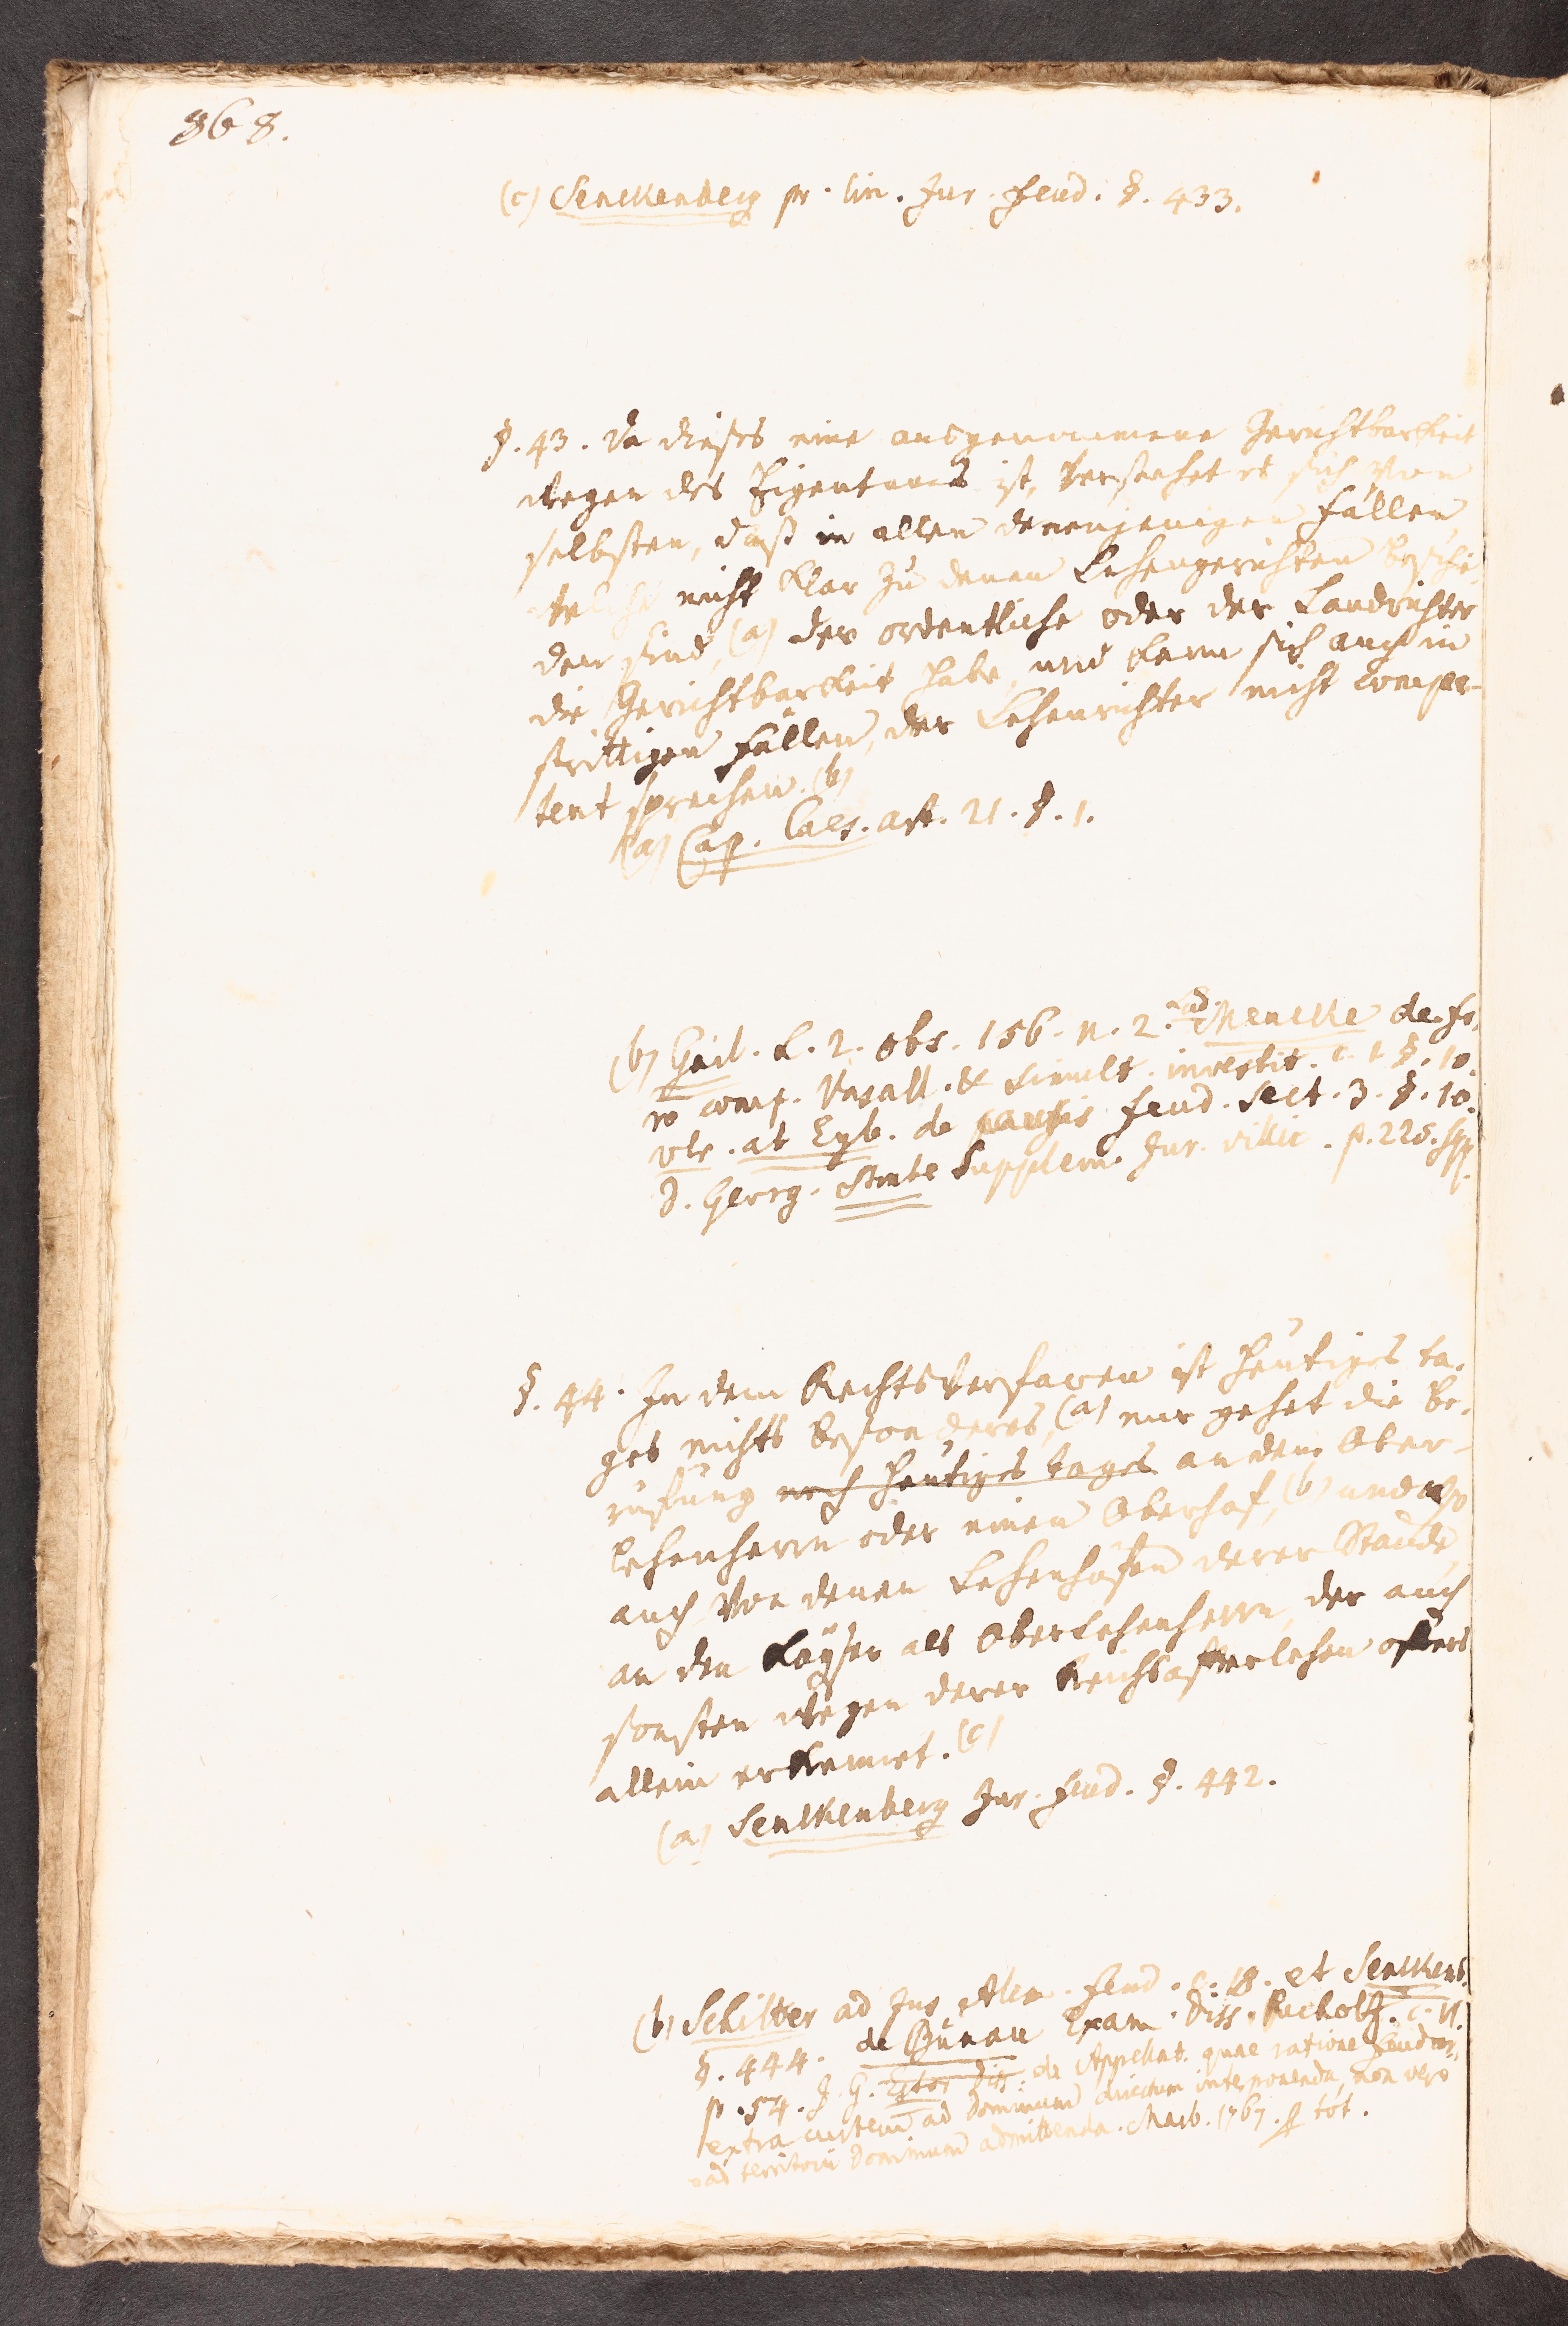 868.
(c) Senckenberg pr. lin. Jur. Feud. §. 433.
§. 43. Da dieses eine ausgenommene Gerichtbarkeit
wegen des Eigentums ist, verstehet es sich von
selbsten, daß in allen denenjenigen Fällen,
welche nicht klar zu denen Lehengerichten beschie-
den sind, (a) der ordentliche oder der Landrichter
die Gerichtbarkeit habe, und kann sich auch in
strittigen Fällen, der Lehenrichter nicht compe-
tent sprechen. (b)
(a) Cap. Caes. art. 21. §. 1.
(b) Gail. L. 2. obs. 156. n. 2. Lüd. Mencke de fo-
ro comp. Vasall. & simult. investit. c. 1 §. 10.
ver. ab Eyb. de causis feud. sect. 3. §. 10.
D. Georg. Strube Supplem. Jur. villic. p. 225. sqq.
§. 44. In dem Rechtsverfaren ist heutiges ta-
ges nichts besonderes, (a) nur gehet die be-
rufung noch heutiges tages an den Ober-
lehenherrn oder einen Oberhof, (b) und also
auch von denen Lehenhöfen derer Stände,
an den Kayser als Oberlehenherrn, der auch
sonsten wegen derer Reichsafterlehen ofters
allein erkennet. (c)
(a) Senckenberg Jur. feud. §. 442.
(b) Schilter ad Jus Alem. Feud. c. 18. et Senckenb.
§. 444. de Bünau Exam. Diss. Bucholtz. c. II.
p. 54. J. G. Estor Diss. de Appellat. quae ratione feudor.
extra curtem ad Dominum directum interponenda, non vero
ad territorii Dominum admittenda. Marb. 1767. p tot.